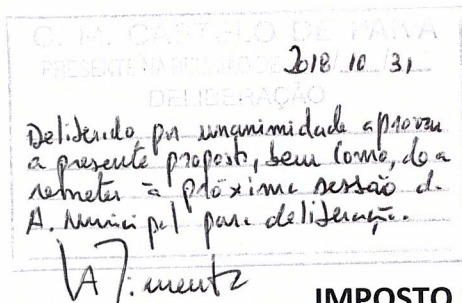 C. M. CASTELO DE PAIVA
PRESENTE NA REUNIÃO DE 2018/10/31
DELIBERAÇÃO
Deliberado por unanimidade aprovar
a presente proposta, bem como, de a
remeter à próxima sessão d.
A. Municipal para deliberação.
IMPOSTO